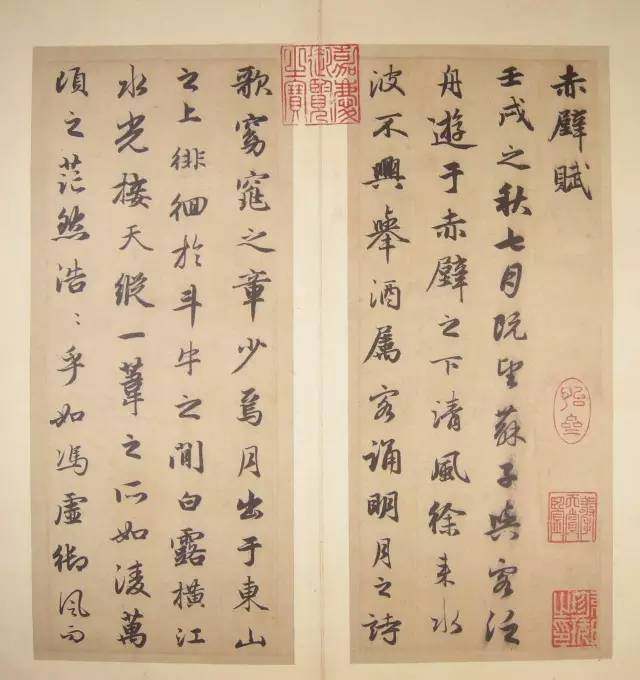 赤壁賦
壬戌之秋七月既望蘇子與客泛
舟遊于赤壁之下清風徐來水
波不興舉酒屬客誦明月之詩
嘉慶御覽之寶
歌窈窕之章少焉月出于東山
之上徘徊於斗牛之間白露橫江
水光接天縱一葦之所如淩萬
頃之茫然浩〻乎如馮虛御風而